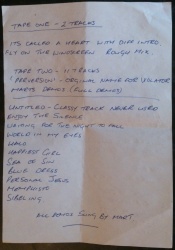 TAPE ONE - 2 TRACKS
ITS CALLED A HEART WITH DIFF INTRO.
FLY ON THE WINDSCREEN ROUGH MIX.
TAPE TWO - 11 TRACKS
'PERVERSION' - ORIGINAL NAME FOR VIOLATOR
MARTS DEMOS (FULL DEMOS)
UNTITLED - CLASSY TRACK NEVER USED
ENJOY THE SILENCE
WAITING FOR THE NIGHT TO FALL
WORLD IN MY EYES
HALO
HAPPIEST GIRL
SEA OF SIN
BLUE DRESS
PERSONAL JESUS
MEMPHISTO
SIBELING
ALL DEMOS SUNG BY MART.